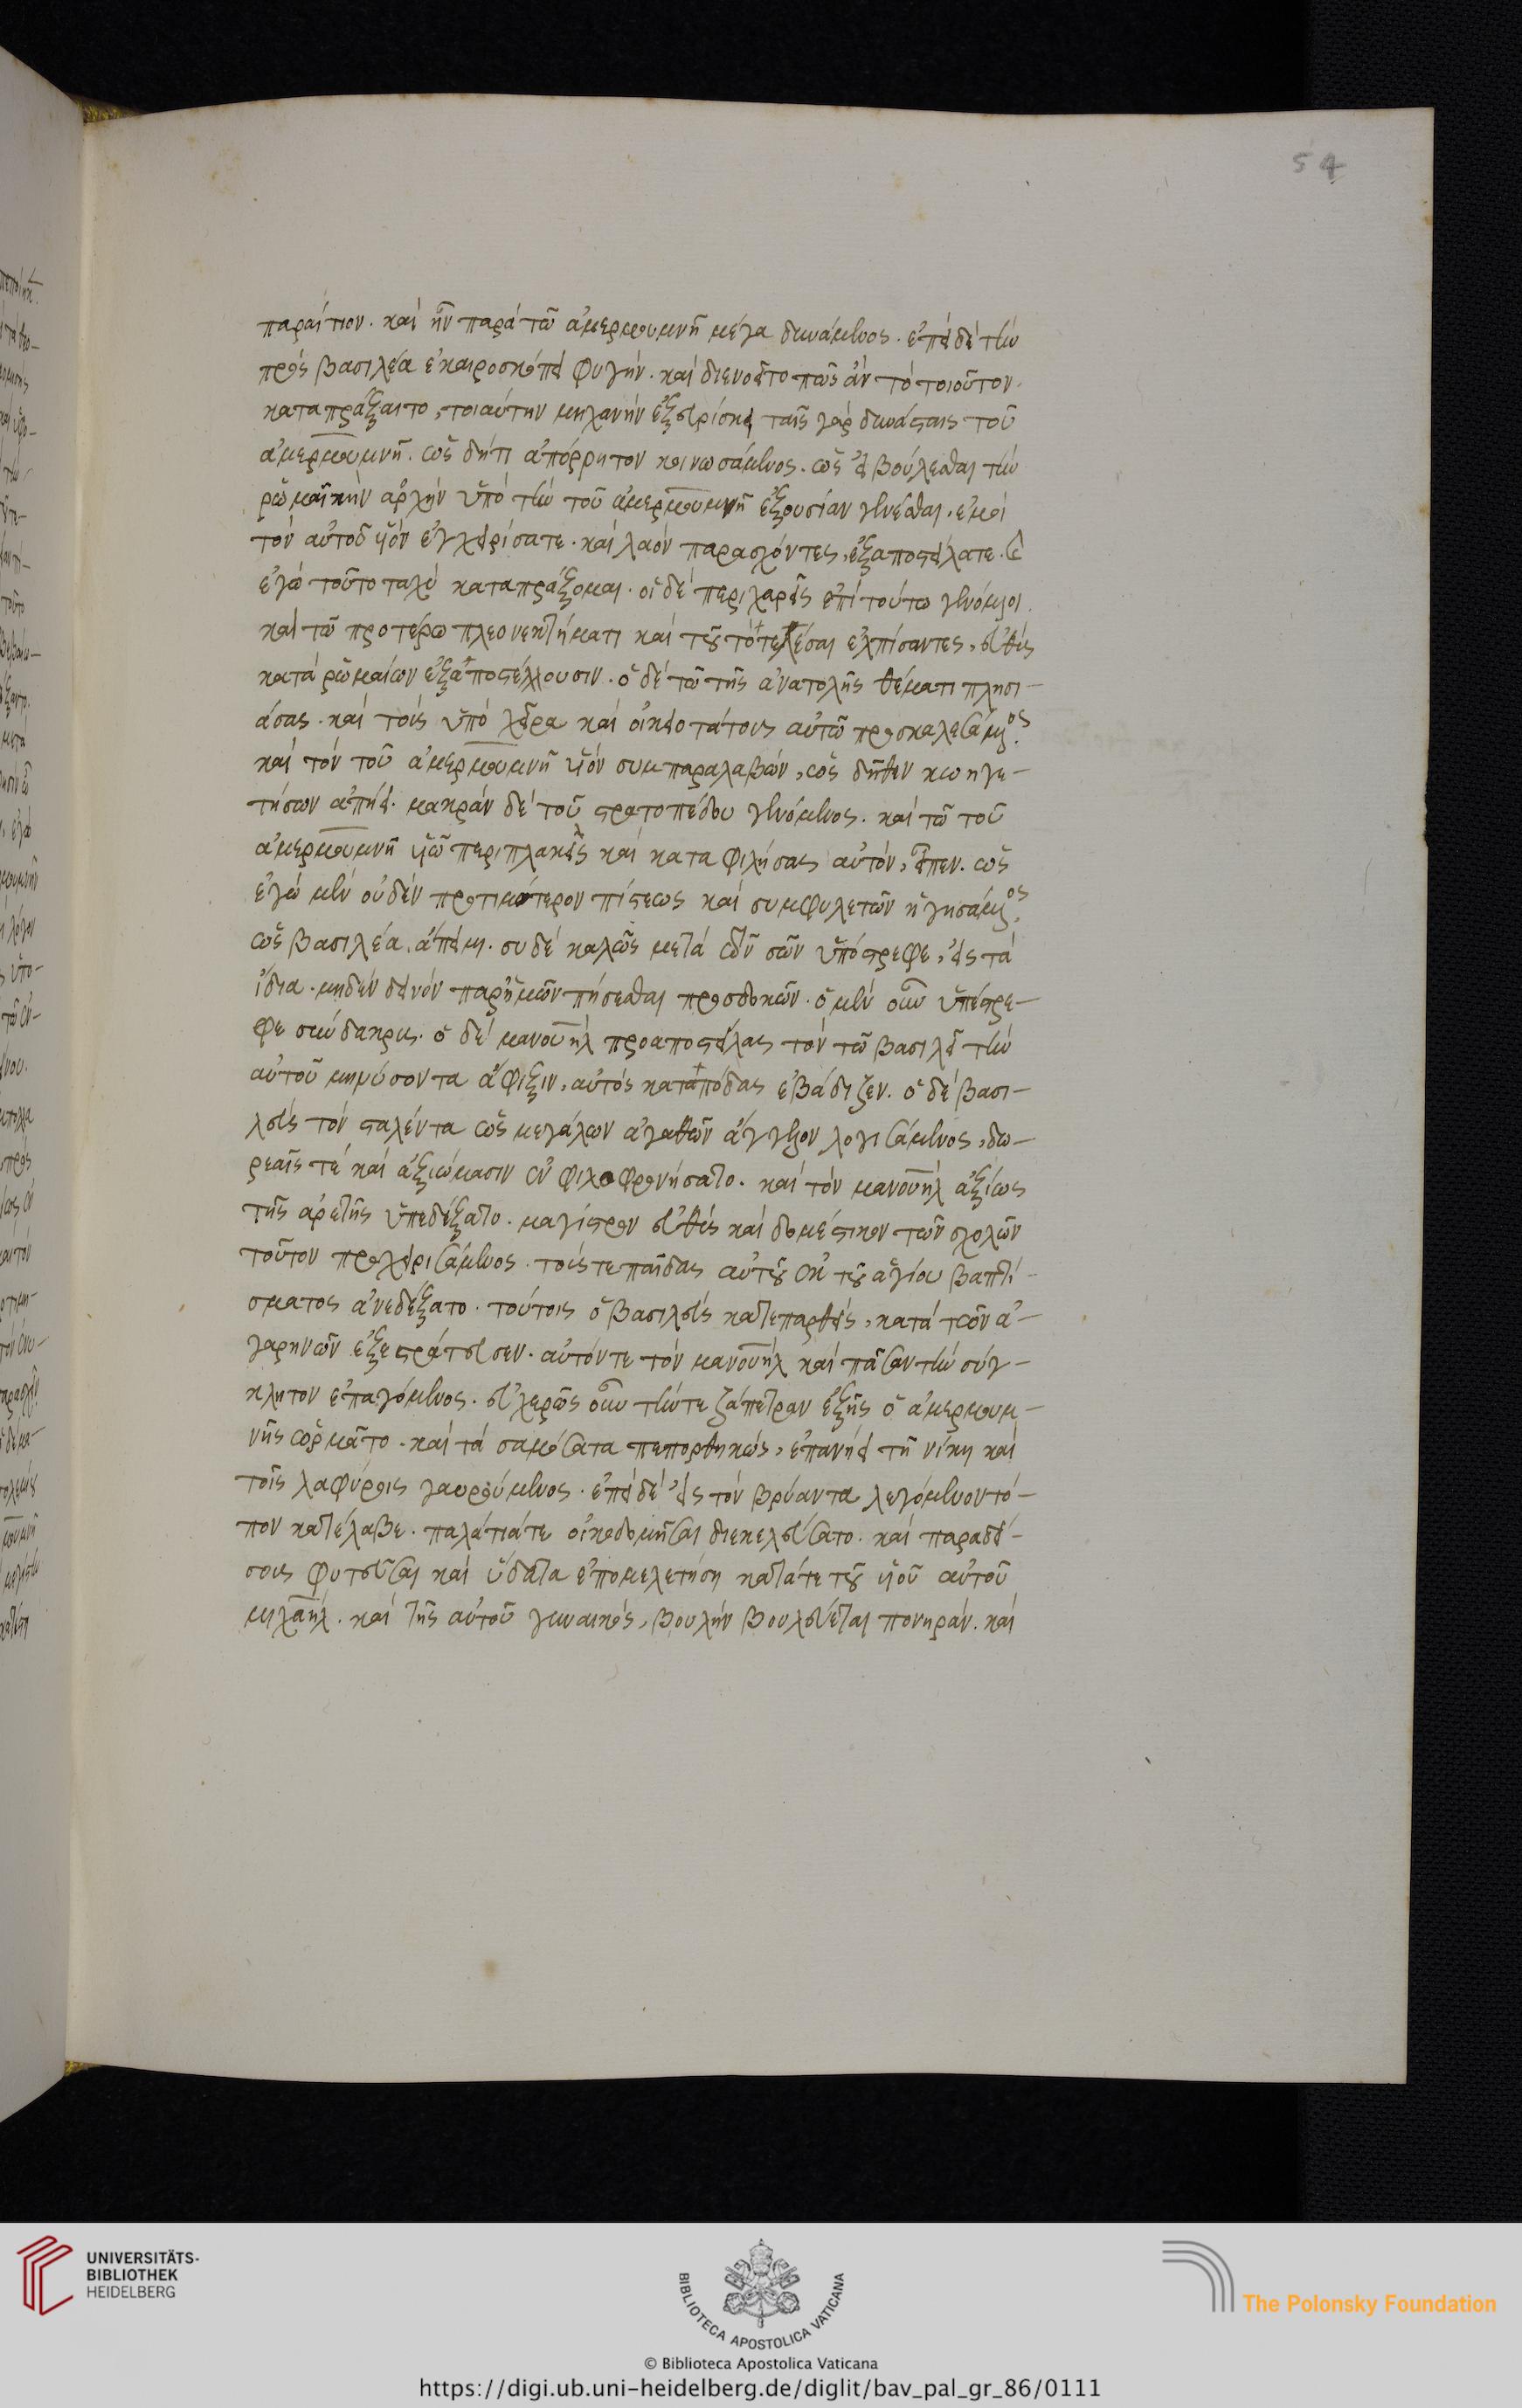 54
παραίτιον. καὶ ἦν παρὰ τῶ ἀμερμουμνῆ μέγα δυνάμενος. ἐπεὶ δὲ τὴν
πρὸς βασιλέα ἐκαιροσκόπει φυγήν. καὶ διενοεῖτο πῶς ἂν τὸ τοιοῦτον
καταπράξαιτο, τοιαύτην μηχανὴν ἐξευρίσκει ταῖς γὰρ δυνάσταις τοῦ
ἀμερμουμνῆ. ὡς δή τι ἀπόρρητον κοινωσάμενος. ὡς εἰ βούλεσθαι τὴν
ῥωμαϊκὴν ἀρχὴν ὑπὸ τὴν τοῦ ἀμερμουμνῆ ἐξουσίαν γενέσθαι, ἐμοὶ
τὸν αὐτοῦ υἱὸν ἐγχειρίσατε. καὶ λαὸν παρασχόντες, ἐξαποστείλατε. καὶ
ἐγὼ τοῦτο ταχὺ καταπράξομαι. οἱ δὲ περιχαρεῖς ἐπὶ τούτω γενόμενοι.
καὶ τῶ προτέρω πλεονεκτήματι καὶ τοῦτο τελέσαι ἐλπίσαντες, εὐθὺς
κατὰ ῥωμαίων ἐξαποστέλλουσιν. ὁ δὲ τῶ τῆς ἀνατολῆς θέματι πλησι-
άσας. καὶ τοὺς ὑπὸ χεῖρα καὶ οἰκειοτάτους αὐτῶ προσκαλεσάμενος.
καὶ τὸν τοῦ ἀμερμουμνῆ υἱὸν συμπαραλαβών, ὡς δῆθεν κυνηγε-
τήσων ἀπήει. μακρὰν δὲ τοῦ στρατοπέδου γενόμενος. καὶ τῶ τοῦ
ἀμερμουμνῆ υἱῶ περιπλακεὶς καὶ καταφιλήσας αὐτόν, εἶπεν. ὡς
ἐγὼ μὲν οὐδὲν προτιμότερον πίστεως καὶ συμφυλετῶν ἡγησάμενος,
ὡς βασιλέα, ἄπειμι. σὺ δὲ καλῶς μετὰ τῶν σῶν ὑπόστρεφε, εἰς τὰ
ἴδια. μηδὲν δεινὸν παρ' ἡμῶν πήσεσθαι προσδοκῶν. ὁ μὲν οὖν ὑπέστρε-
φε σὺν δάκρυσι. ὁ δὲ μανουὴλ προαποστείλας τὸν τῶ βασιλεῖ τὴν
αὐτοῦ μηνύσοντα ἄφιξιν, αὐτὸς κατὰ πόδας ἐβάδιζεν. ὁ δὲ βασι-
λεὺς τὸν σταλέντα ὡς μεγάλων ἀγαθῶν ἄγγελον λογισάμενος, δω-
ρεαῖς τὲ καὶ ἀξιώμασιν ἐνφιλοφρονήσατο. καὶ τὸν μανουὴλ ἀξίως
τῆς ἀρετῆς ὑπεδέξατο. μαγίστρον εὐθὺς καὶ δομέστικον τῶν σχολῶν
τοῦτον προχειρισάμενος. τούς τε παῖδας αὐτοῦ ἐκ τοῦ ἁγίου βαπτί-
σματος ἀνεδέξατο. τούτοις ὁ βασιλεὺς κατεπαρθείς, κατὰ τῶν ἀ-
γαρηνῶν ἐξεστράτευσεν. αὐτόν τε τὸν μανουὴλ καὶ πᾶσαν τὴν σύγ-
κλητον ἐπαγόμενος. εὐχερῶς οὖν τήν τε ζάπετραν ἐξῆς ὁ ἀμερμουμ-
νῆς ὡρμᾶτο. καὶ τὰ σαμόσατα πεπορθηκώς, ἐπανήει τῆ νίκη καὶ
τοῖς λαφύροις γαυρούμενος. ἐπεὶ δὲ εἰς τὸν βρύαντα λεγόμενον τό-
πον κατέλαβε. παλάτιά τε οἰκοδομῆσαι διεκελεύσατο. καὶ παραδεί-
σους φυτεῦσαι καὶ ὕδατα ἐπομελετήση κατά τε τοῦ υἱοῦ αὐτοῦ
μιχαὴλ. καὶ τῆς αὐτοῦ γυναικός, βουλὴν βουλεύεται πονηράν. καὶ
UNIVERSITÄTS-
BIBLIOTHEK
HEIDELBERG
BIBLIOTECA APOSTOLICA VATICANA
The Polonsky Foundation
© Biblioteca Apostolica Vaticana
https://digi.ub.uni-heidelberg.de/diglit/bav_pal_gr_86/0111